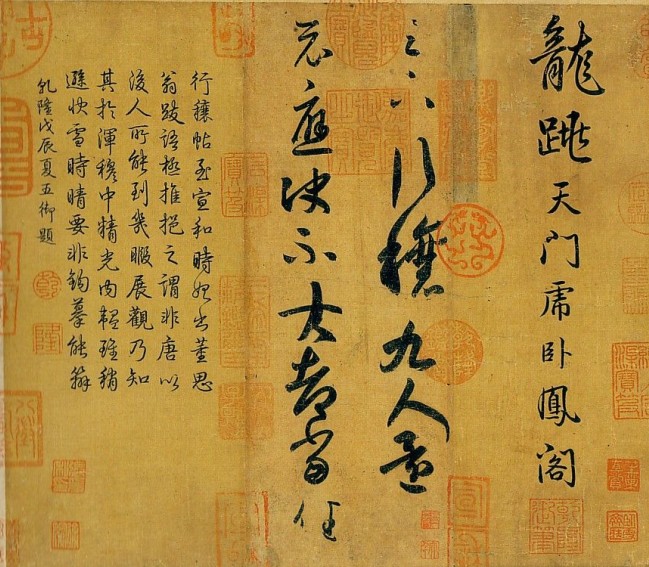 龍跳天門虎臥鳳閣
足下行穰九人還
示應決不大都當佳
行穰帖至宣和時始出董思
翁跋語極推挹之謂非唐以
後人所能到幾暇展觀乃知
其於渾穆中精光內韞雖稍
遜快雪時晴要非鈎摹能辦
乾隆戊辰夏五御題